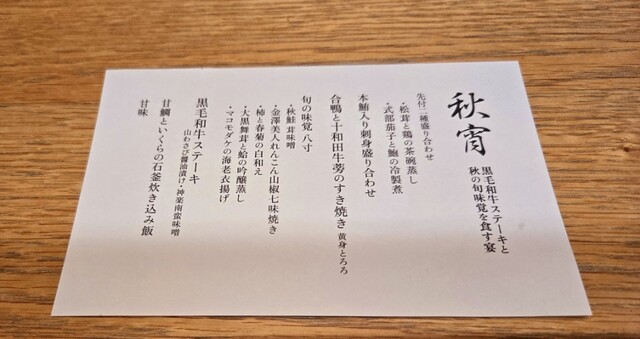 秋宵
黒毛和牛ステーキと
秋の旬味覚を食す宴
先付二種盛り合わせ
・松茸と鶏の茶碗蒸し
・式部茄子と鮑の冷製煮
本鮪入り刺身盛り合わせ
合鴨と十和田牛蒡のすき焼き 黄身とろろ
旬の味覚 八寸
・秋鮭茸味噌
・金澤美人れんこん山椒七味焼き
・柿と春菊の白和え
・大黒舞茸と蛤の吟醸蒸し
・マコモダケの海老衣揚げ
黒毛和牛ステーキ
山わさび醤油漬け・神楽南蛮味噌
甘鯛といくらの石釜炊き込み飯
甘味